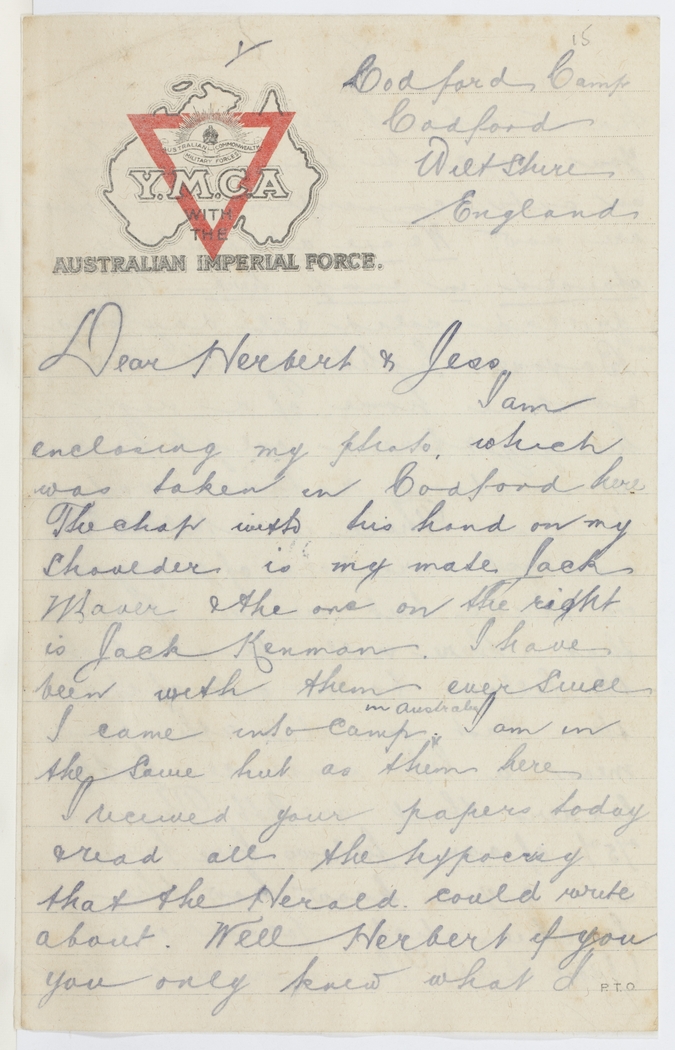 15
Codford Camp
Codford
Wiltshire
England
AUSTRALIAN COMMONWEALTH
MILITARY FORCES
Y.M.C.A
WITH
THE
AUSTRALIAN IMPERIAL FORCE.
Dear Herbert & Jess
I am
enclosing my photo. which
was taken in Codford here
The chap with his hand on my
shoulder is my mate Jack
& the one on the right
is Jack Kenman. I have
been with them ever since
in Australia
I came into camp. I am in
the same hut as them here
I received your papers today
& read all the hypocrisy
that the Herald. could write
about. Well Herbert if you
you only knew what I
P.T.O